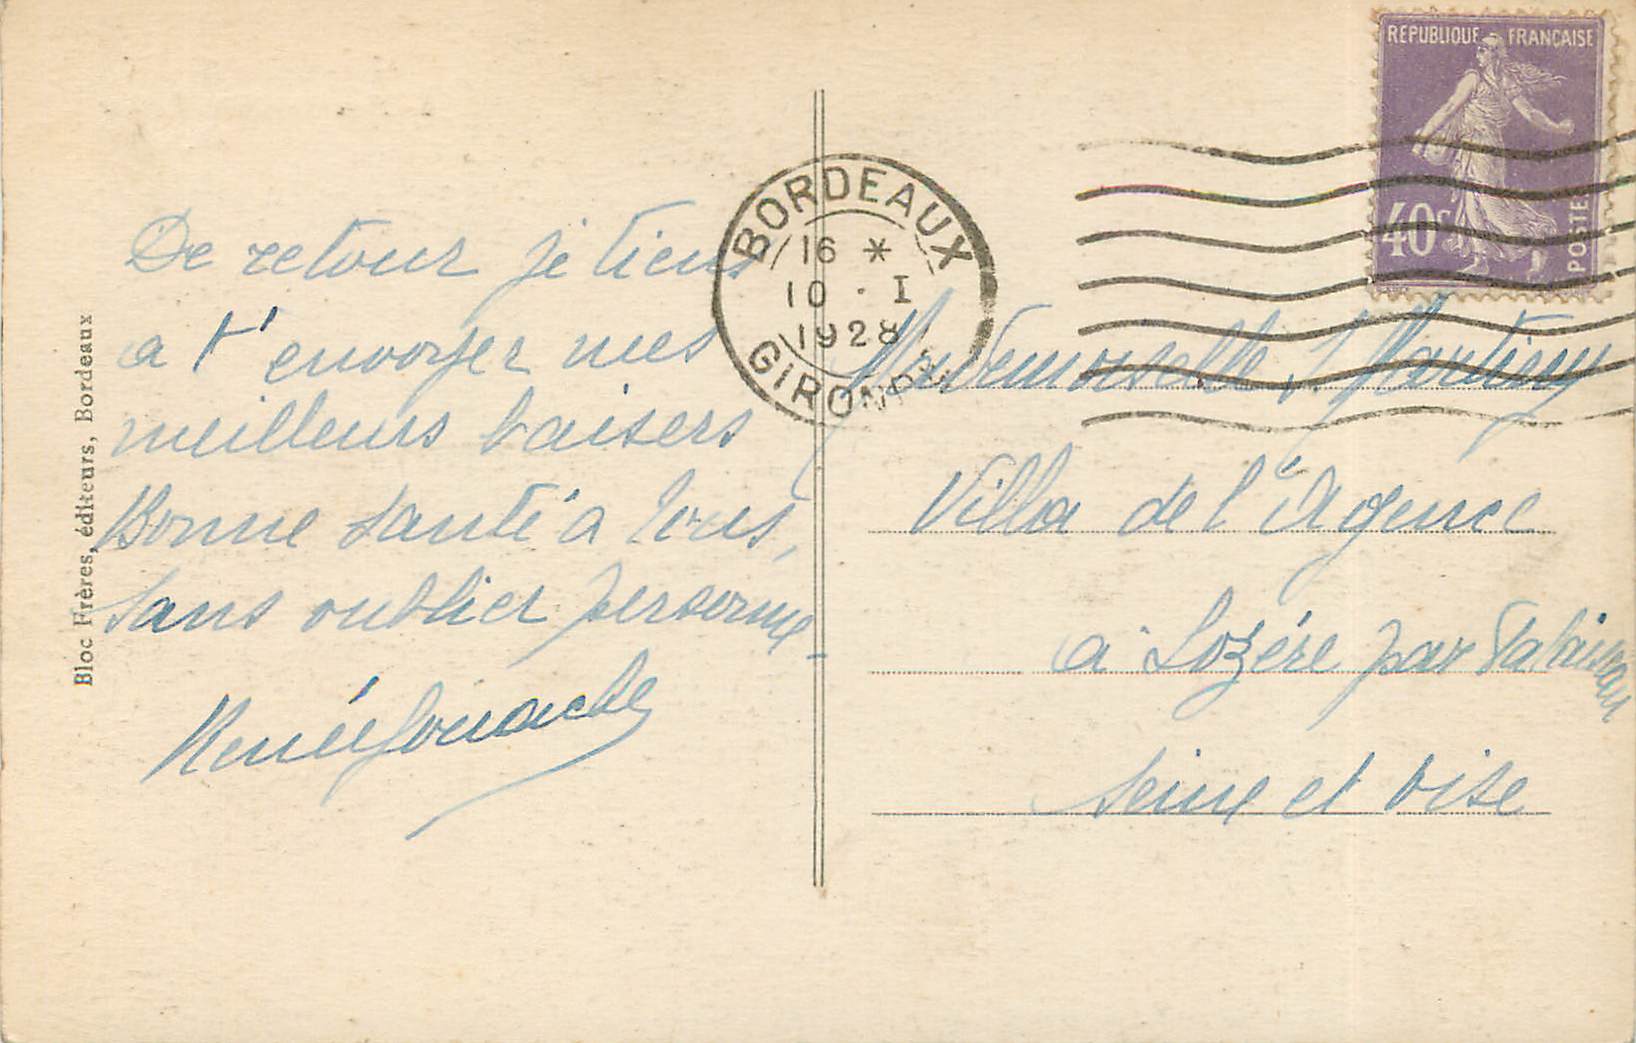 De retour je tiens
a t'envoyer mes
meilleurs baisers
Bonne santé a tous,
sans oublier personne
René
Bloc Frères, éditeurs, Bordeaux
BORDEAUX
16 *
10 · I
1928
GIRONDE
REPUBLIQUE FRANÇAISE
40c
POSTES
Mademoiselle J Martiny
Villa de l'Agence
à Lozére par Palaiseau
Seine et Oise